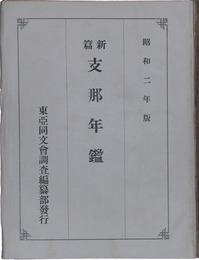 昭和二年版
新篇
支那年鑑
東亞同文會調査編纂部發行